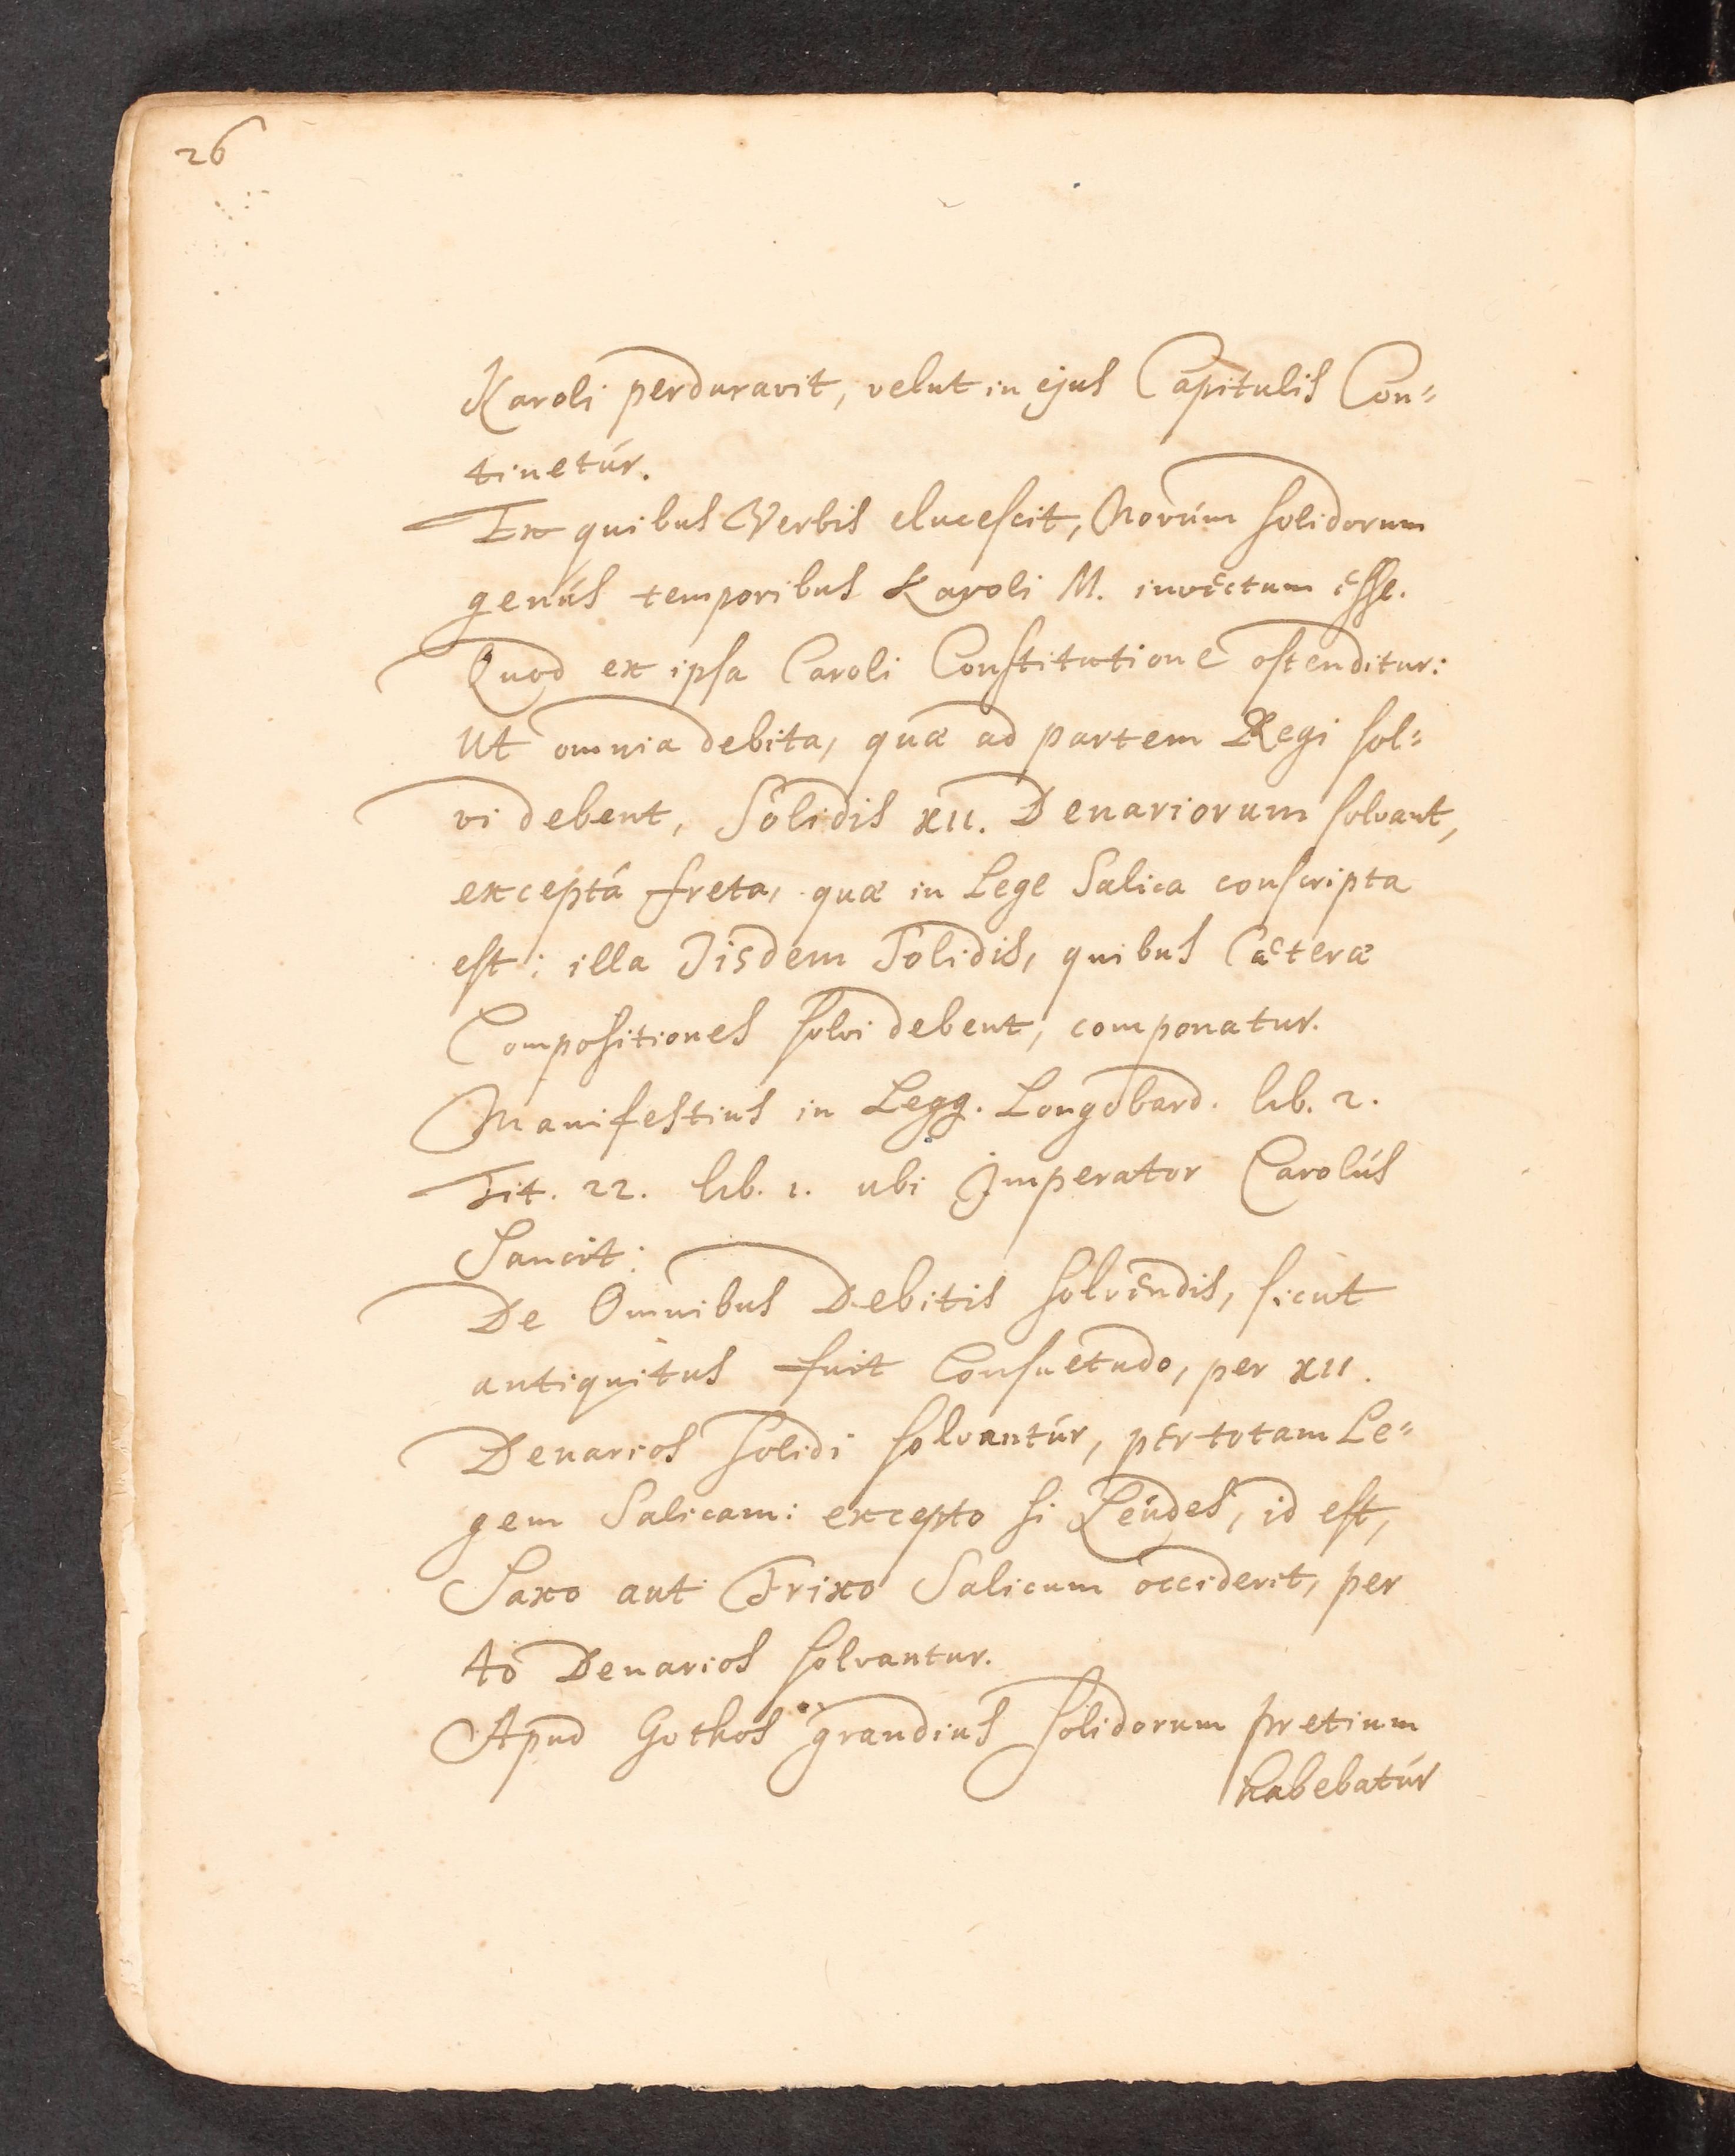 26
Karoli perduravit, velut in ejus Capitulis Con=
tinetúr.
Ex quibus Verbis elucescit, Novúm solidorum
genús temporibus Karoli M. invectum esse.
Quod ex ipsa Caroli Constitutione ostenditur:
Ut omnia debita, quæ ad partem Regi sol=
vi debent, Solidis XII. Denariorum solvant,
exceptâ freta, quæ in Lege Salica conscripta
est: illa Iisdem Solidis, quibus Cæteræ
Compositiones solvi debent, componatur.
Manifestius in Legg. Longobard. lib. 2.
Tit. 22. lib. 1. ubi Imperator Carolús
Sancit:
De Omnibus Debitis solvendis, sicut
antiquitus fuit Consuetudo, per XII.
Denarios solidi solvantúr, per totam Le=
gem Salicam: excepto si Leúdes, id est,
Saxo aut Frixo Salicum occiderit, per
40 Denarios solvantur.
Apud Gothos grandius solidorum pretium
habebatúr